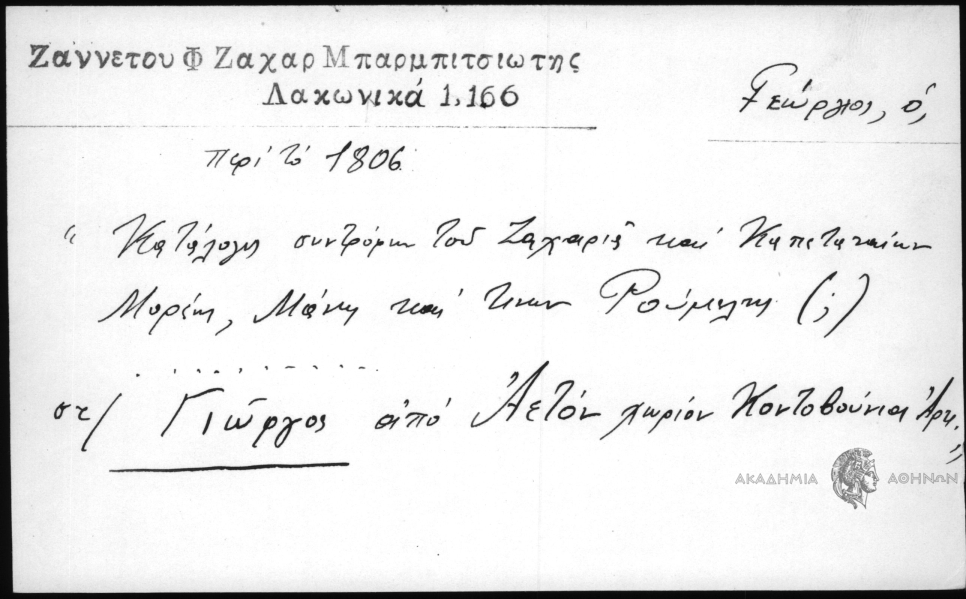 Ζαννετου Φ Ζαχαρ Μπαρμπιτσιωτης
Λακωνικά 1, 166
Γεώργιος, ὁ,
περί τό 1806
"Κατάλογος συντρόφων τοῦ Ζαχαριᾶ καί Καπεταναίων
Μορέως, Μάνης καί τινων Ρούμελης (;)
. . . . . . . . . . .
στ/ Γιῶργος ἀπό Ἀετόν χωρίον Κοντοβούνια Ἀρκ.,
ΑΚΑΔΗΜΙΑ ΑΘΗΝΩΝ